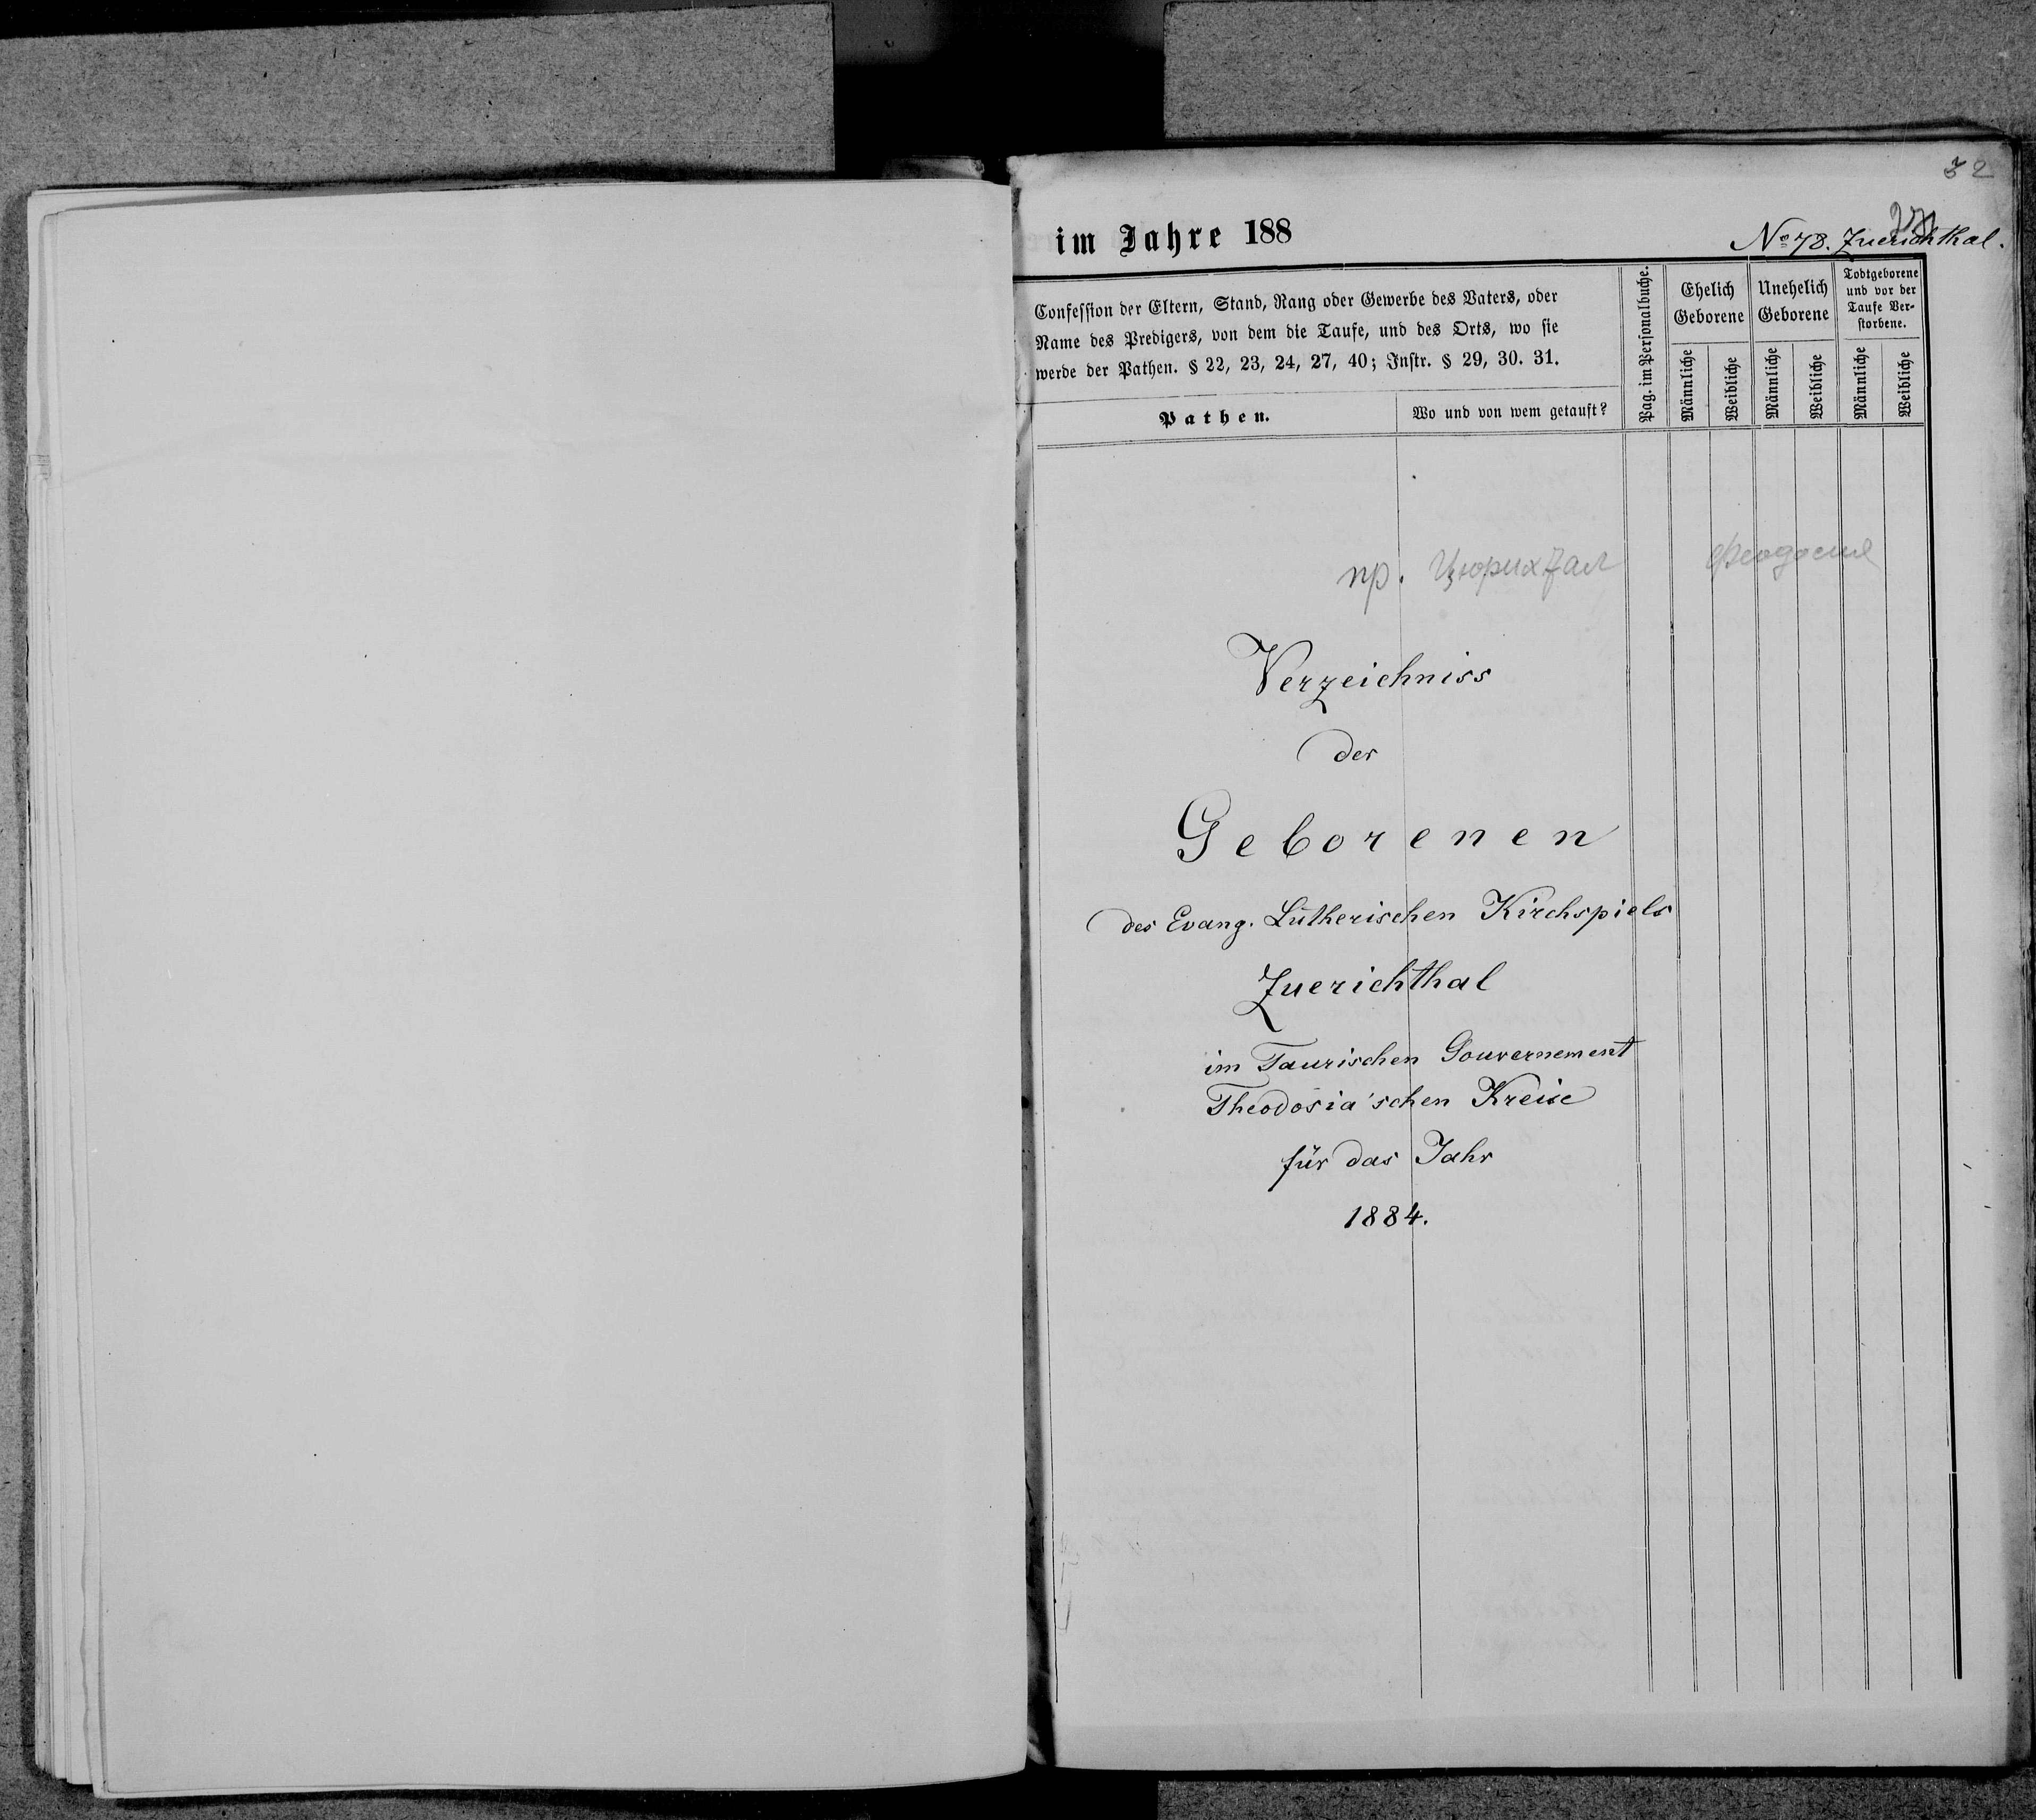 32
im Jahre 188
No 78. Zuerichthal.
Confession der Eltern, Stand, Rang oder Gewerbe des Vaters, oder
Name des Predigers, von dem die Taufe, und des Orts, wo sie
werde der Pathen. § 22, 23, 24, 27, 40; Instr. § 29, 30. 31.
Pathen.
Wo und von wem getauft?
Pag. im Personalbuche.
Ehelich
Geborene
Unehelich
Geborene
Todtgeborene
und vor der
Taufe Ver-
storbene.
Männliche
Weibliche
Männliche
Weibliche
Männliche
Weibliche
пр. Цюрихтал Феодосия
Verzeichniss
der
Geborenen
des Evang. Lutherischen Kirchspiels
Zuerichthal
im Taurischen Gouvernement
Theodosia'schen Kreise
für das Jahr
1884.